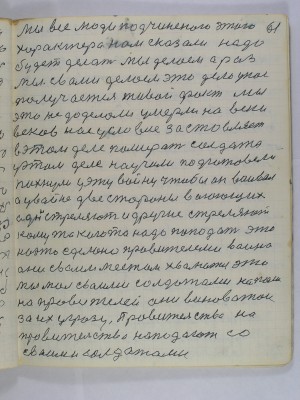 Мы все люди подчиненого этого 61
характера нам сказали надо
будет делат мы делоем а раз
мы свами делоем это дело у нас
получается такой факт мы
это не доделоли умерли на веки
веков нас условие заставляет
в этом деле помират солдата
у этом деле научили подготовели
пихнули у эту войну чтобы он воевал
а у войне две стороны воюющих
одни стреляют и другие стреляют
кому то кого то надо поподат это
на это сделано провителеми война
они своим местом хвалятся это
мол своими солдатами напали
на провителей они виноватои
за их угрозу. Правительство на
провительство нападают со
своими солдатами